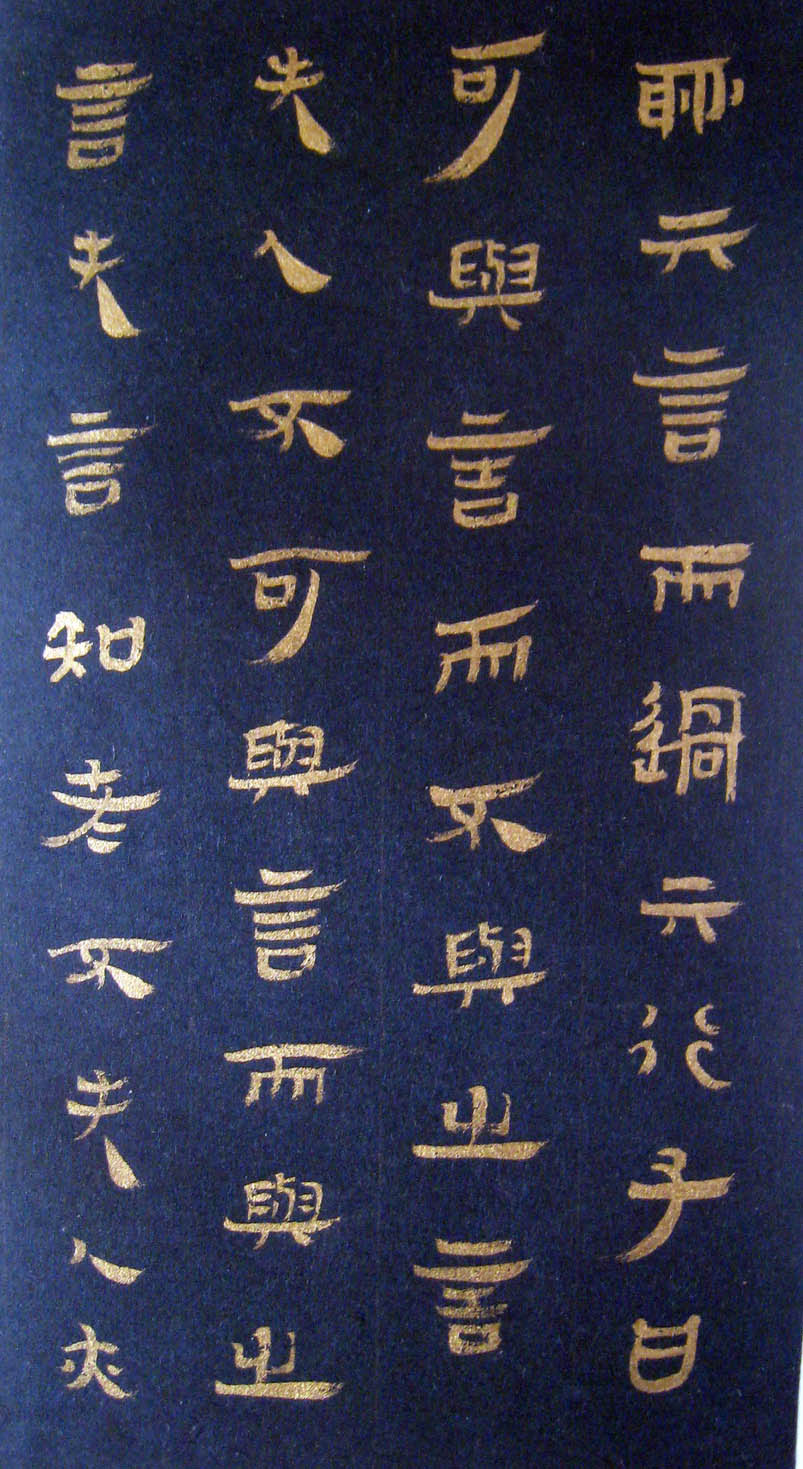 恥亓言而過亓行子曰
可與言而不與之言
失人不可與言而與之
言失言知者不失人亦